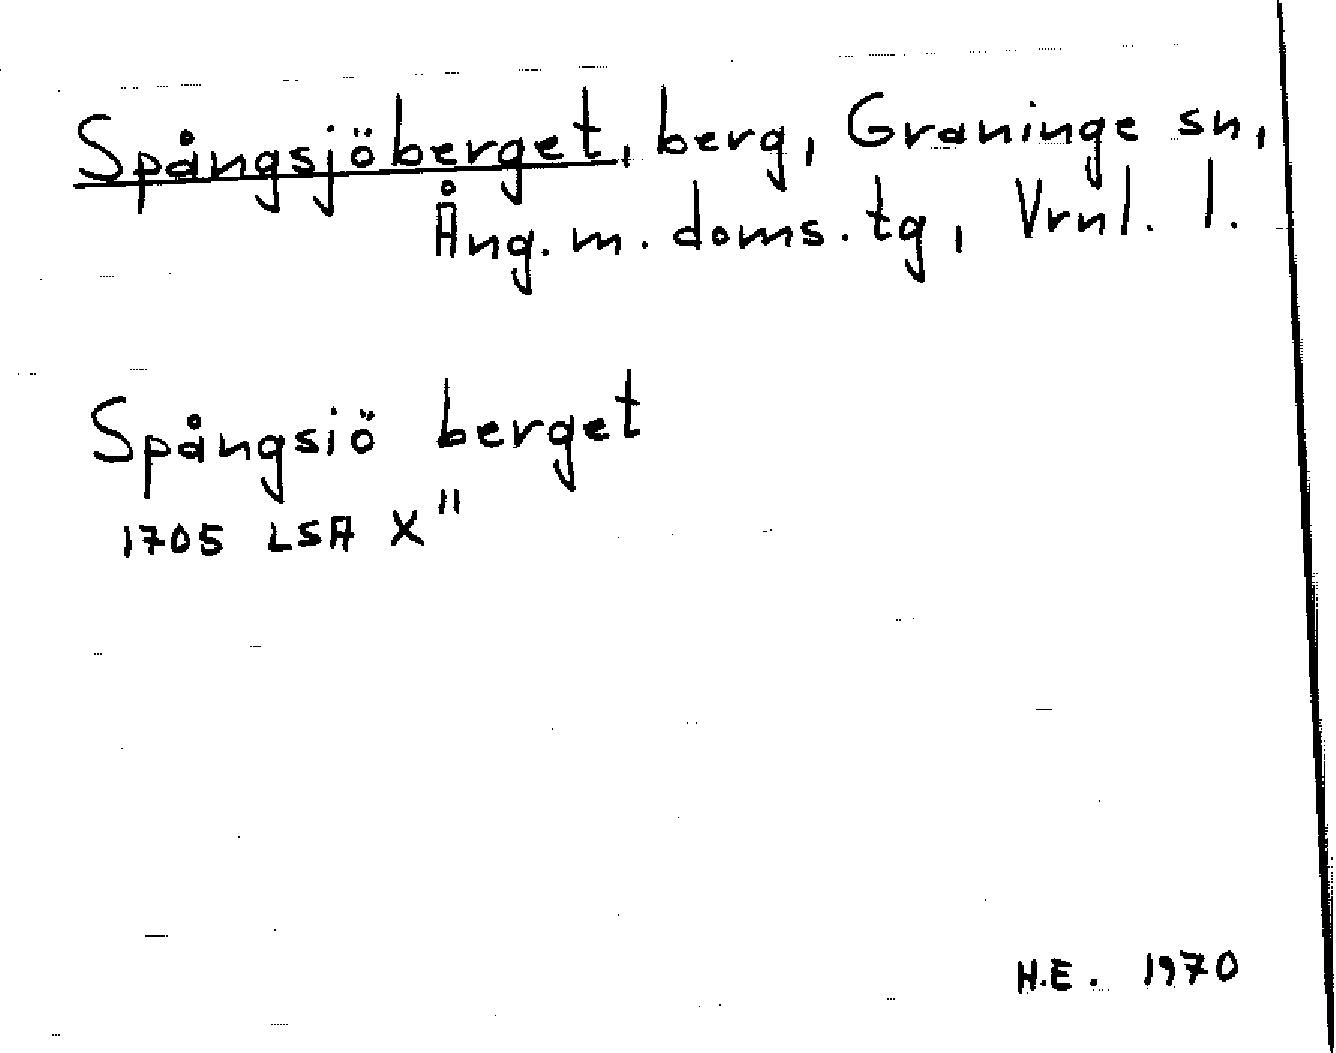 Spångsjöberget, berg, Graninge sn,
Ång. m. doms. tg, Vrnl. l.
Spångsiö berget
1705 LSA X"
H.E. 1970